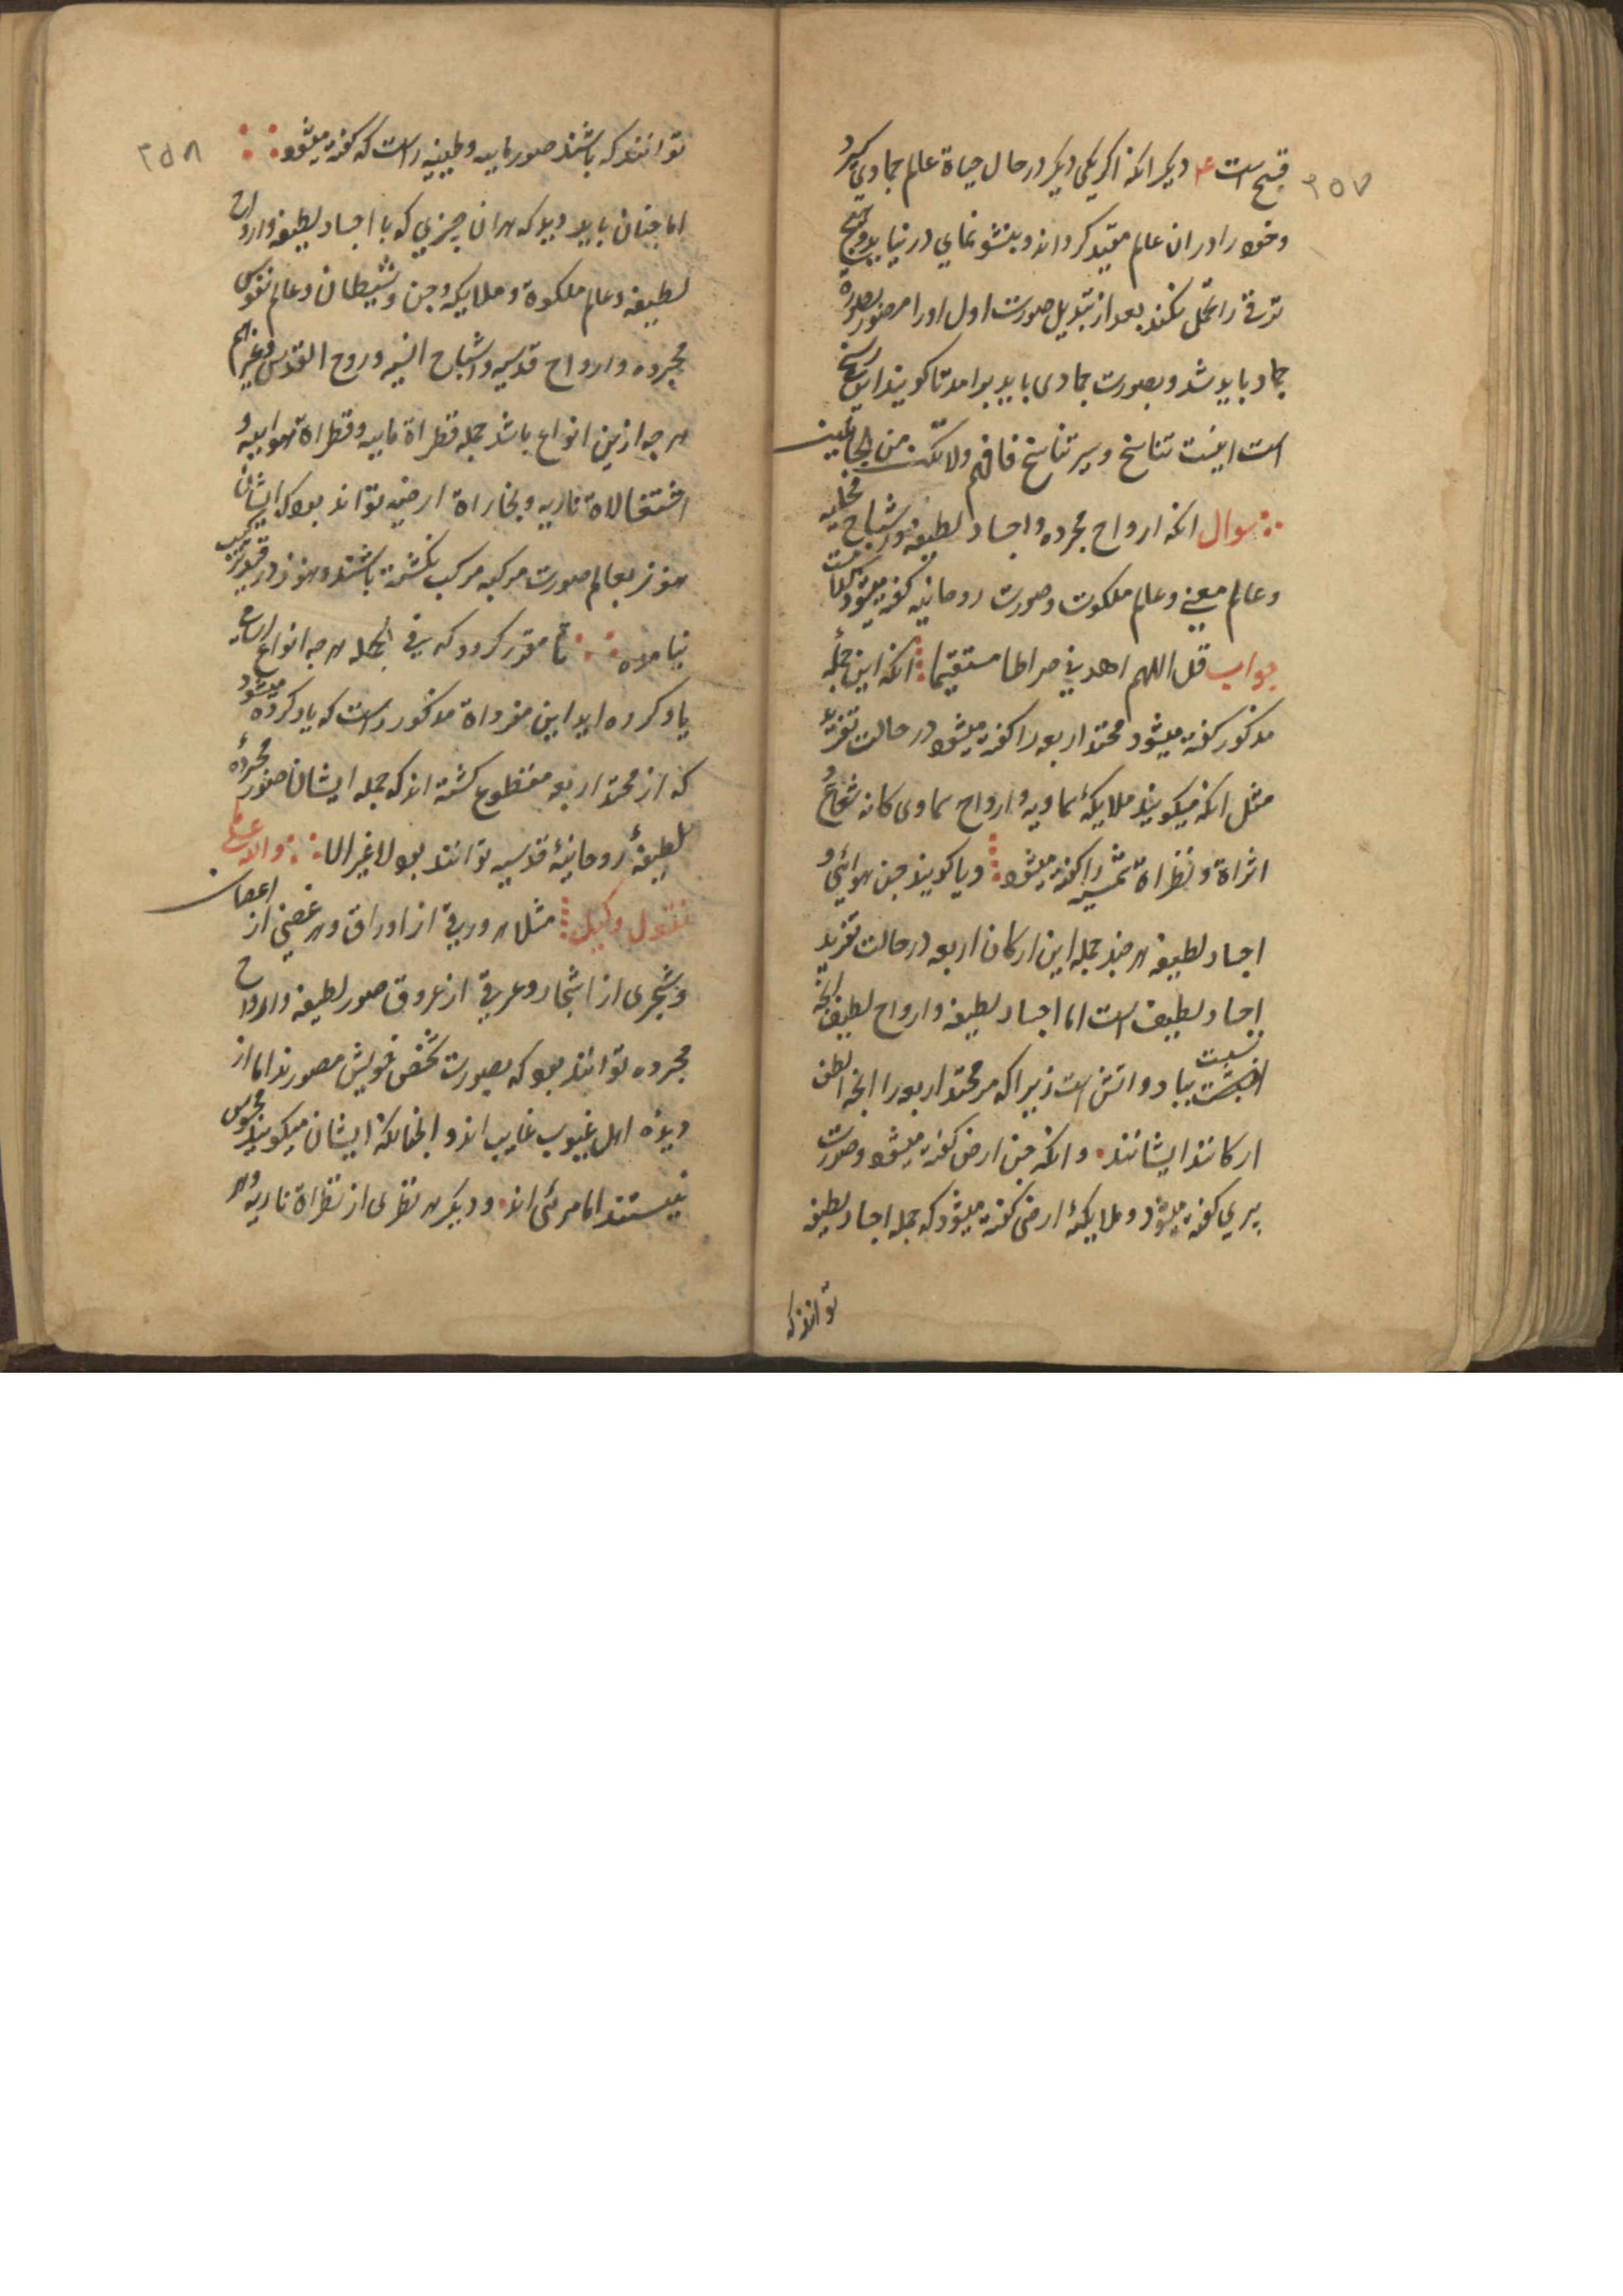 ۲۵۷
قبح است ۴ دیکر انکه اکر یکی دیکر در حال حیاة علم جمادی کیرد
و خود را در ان عالم مقید کرداند و بنشو نمای در نیاید و هیچ
ترقی را تحمل نکند بعد از تبدیل صورت اول او را مصور بصورة
جماد باید شد و بصورت جمادی باید برامد تا کویند این رسخ
است اینست تناسخ و سر تناسخ فافهم ولا تکن من الجاهلین
سوال انکه ارواح مجرده و اجساد لطیفه و اشباح
وعالم معنی وعلم ملکوت وصورت روحانیه کفته میشود کدامست
جواب قل اللهم اهدنی صراطا مستقیما انکه این جمله
مذکور کفته میشود محتد اربعه را کفته میشود در حالت تفرید
مثل انکه میکویند ملایکۀ سماویه و ارواح سماوی کانه شعاع و
اثراة و نظراة شمسیه را کفته میشود و یا کویند جن هوائی و
اجساد لطیفه هر چند جمله این ارکان اربعه در حالت تفرید
اجساد لطیف است اما اجساد لطیفه و ارواح لطیف انچه
نسبت بباد و اتش است زیرا که مر محتد اربعه را انچه الطف
ارکانند ایشانند و انکه جن ارض کفته میشود و صورت
پری کفته میشود و ملایکۀ ارضی کفته میشود که جمله اجساد لطیفه
توانند که
۲۵۸
توانند که باشند صور مابیه و طینیه راست که کفته میشود
اما چنان باید دید که هر ان چیزی که با اجساد لطیفه و ارواح
لطیفه و عالم ملکوة و ملایکه و جن و شیطان و عالم نفوس
مجرده و ارواح قدسیه و اشباح انسیه و روح القدس و غیرهم
هر چه ازین انواع باشد جمله قطراة مابیه و قطراة هوابیه و
اشتعالاة ناریه و بخاراة ارضیه تواند بود که ایشان
هنوز بعالم صورت مرکبه مرکب نکشته باشند و هنوز در قید ترکیب
نیامده تا مقرر کردد که فی الجمله هر چه انواع
یاد کرده اید این مفرداة مذکور راست که یاد کرده میشود
که از محتد اربعه منقطوع کشته اند که جمله ایشان صور مجردۀ
لطیفۀ روحانیۀ قدسیه توانند بود لا غیر الا والله علی
نقول وکیل مثلا هر ورقی از اوراق و هر غصنی از اغصان
و شجری از اشجار و عرقی از عروق صور لطیفه و ارواح
مجرده توانند بود که بصورت شخص خویش مصورند اما از
دیدۀ اهل غیوب غایب اند و انچنانکه ایشان میکویند محسوس
نیستند اما مرئی اند و دیکر هر نظری از نظراة ناریه و هر